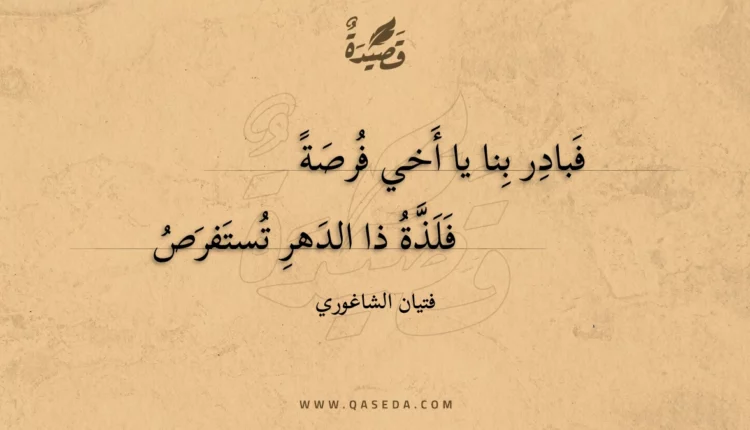 قَصِيْدَةٌ
فَبادِر بِنا يا أَخي فُرصَةً
فَلَذَّةُ ذا الدَهرِ تُستَفرَصُ
فتيان الشاغوري
WWW.QASEDA.COM